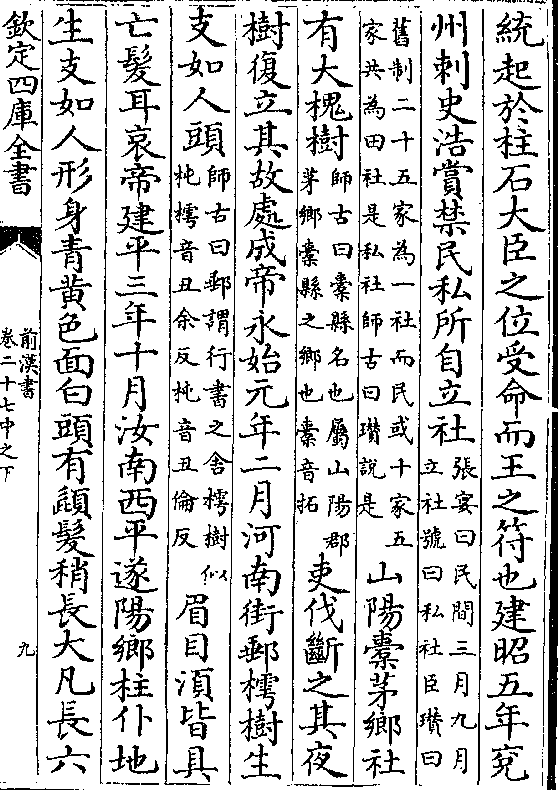 統起於柱石大臣之位受命而王之符也建昭五年兖
州刺史浩賞禁民私所自立社張宴曰民間三月九月立社號曰私社臣瓉曰
舊制二十五家為一社而民或十家五家共為田社是私社師古曰瓉說是山陽橐茅鄉社
有大槐樹師古曰橐縣名也屬山陽郡茅鄉橐縣之鄉也橐音拓吏伐斷之其夜
樹復立其故處成帝永始元年二月河南街郵樗樹生
支如人頭師古曰郵謂行書之舍樗樹似杶樗音丑余反杶音丑倫反眉目湏皆具
亡髮耳哀帝建平三年十月汝南西平遂陽鄉柱仆地
生支如人形身青黄色面白頭有頿髮稍長大凡長六
欽定四庫全書
前漢書
卷二十七中之下
九